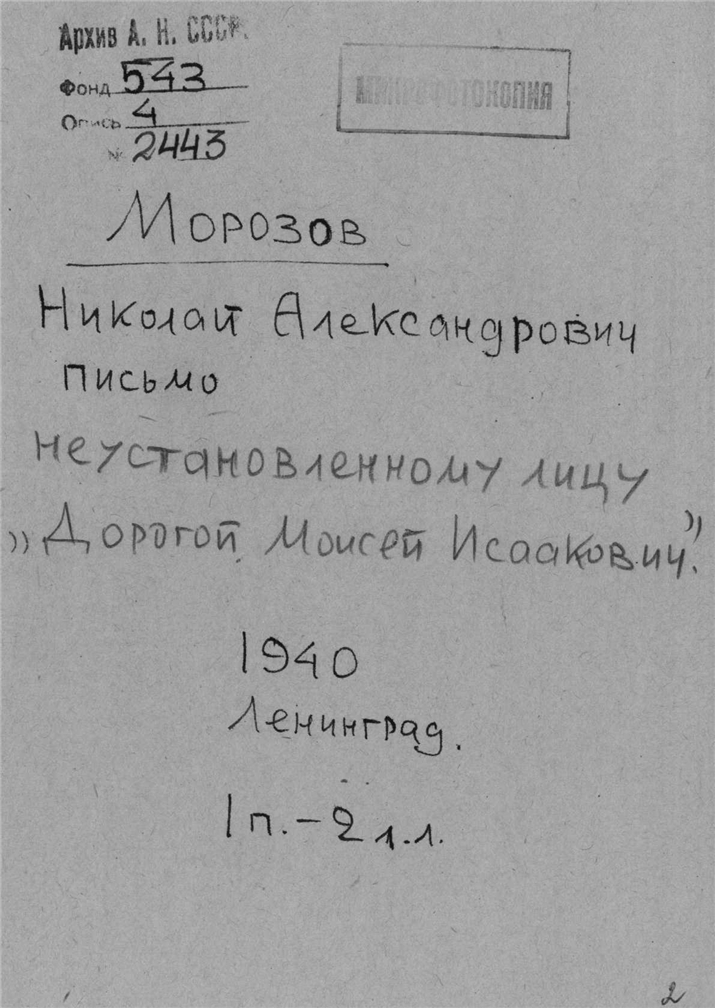 Архив А. Н. СССР.
Фонд 543
Опись 4
№ 2443
МИКРОФОТОКОПИЯ
МОРОЗОВ
Николай Александрович
письмо
неустановленному лицу
„Дорогой Моисей Исаакович".
1940
Ленинград.
1 п. – 2 л.л.
2